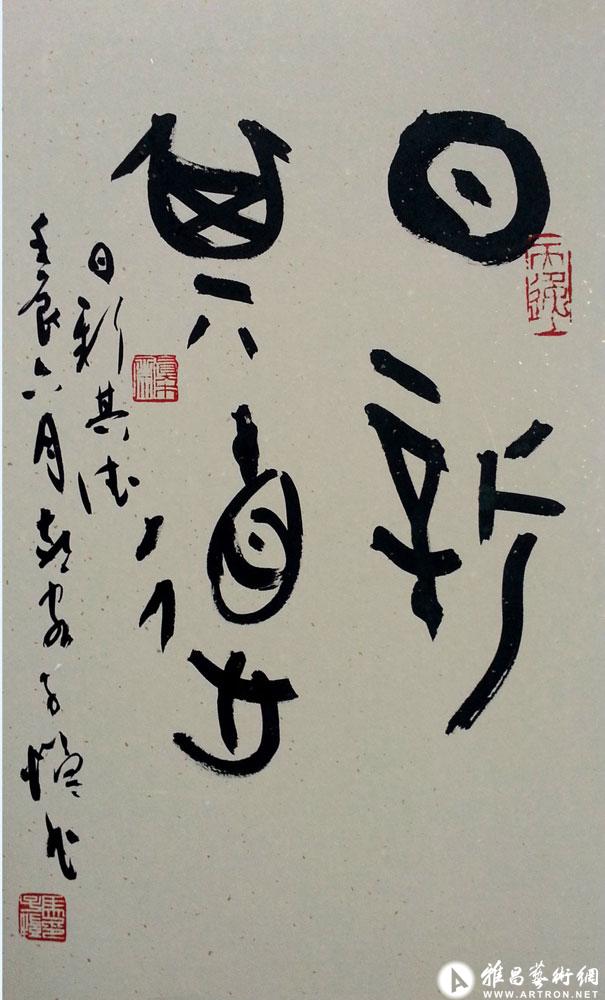 日新
其德
日新其德
壬辰六月
雅昌藝術網
WWW.ARTRON.NET